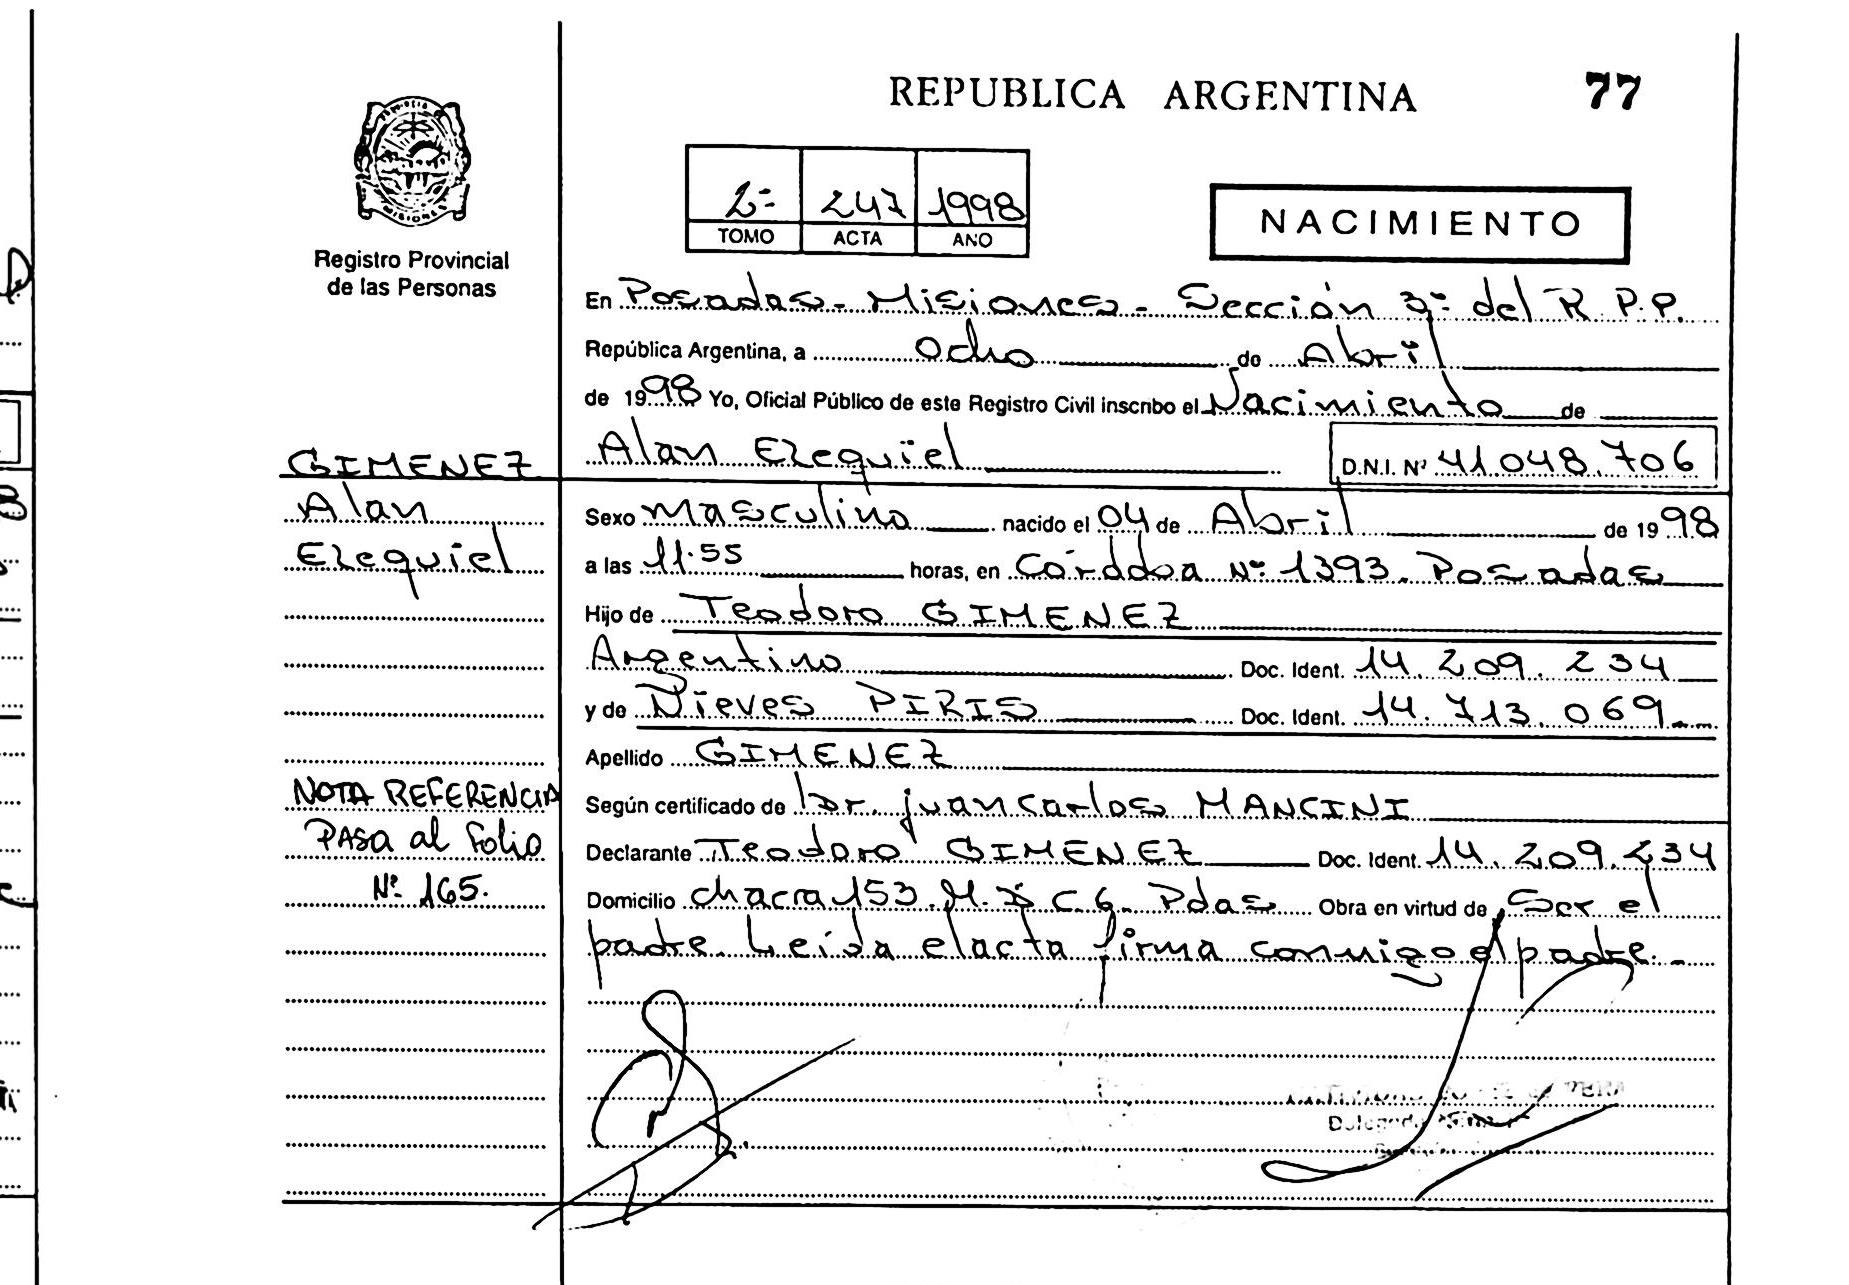 REPUBLICA ARGENTINA 77
2º 247 1998
TOMO ACTA AÑO
NACIMIENTO
MISIONES
Registro Provincial
de las Personas
En Posadas - Misiones - Sección 3º del R.P.P.
República Argentina, a Ocho de Abril
de 1998 Yo, Oficial Público de este Registro Civil inscribo el Nacimiento de
Alan Ezequiel D.N.I. Nº 41.048.706
GIMENEZ
Alan
Ezequiel
Sexo masculino nacido el 04 de Abril de 1998
a las 11.55 horas, en Córdoba Nº 1393. Posadas
Hijo de Teodoro GIMENEZ
Argentino Doc. Ident. 14.209.234
y de Nieves PIRIS Doc. Ident. 14.713.069
Apellido GIMENEZ
NOTA REFERENCIA
PASA al Folio
Nº 165.
Según certificado de Dr. Juan Carlos MANCINI
Declarante Teodoro GIMENEZ Doc. Ident. 14.209.234
Domicilio chacra 153. M. C 6. Pdas Obra en virtud de Ser el
padre. Leída el acta firma conmigo el padre.-